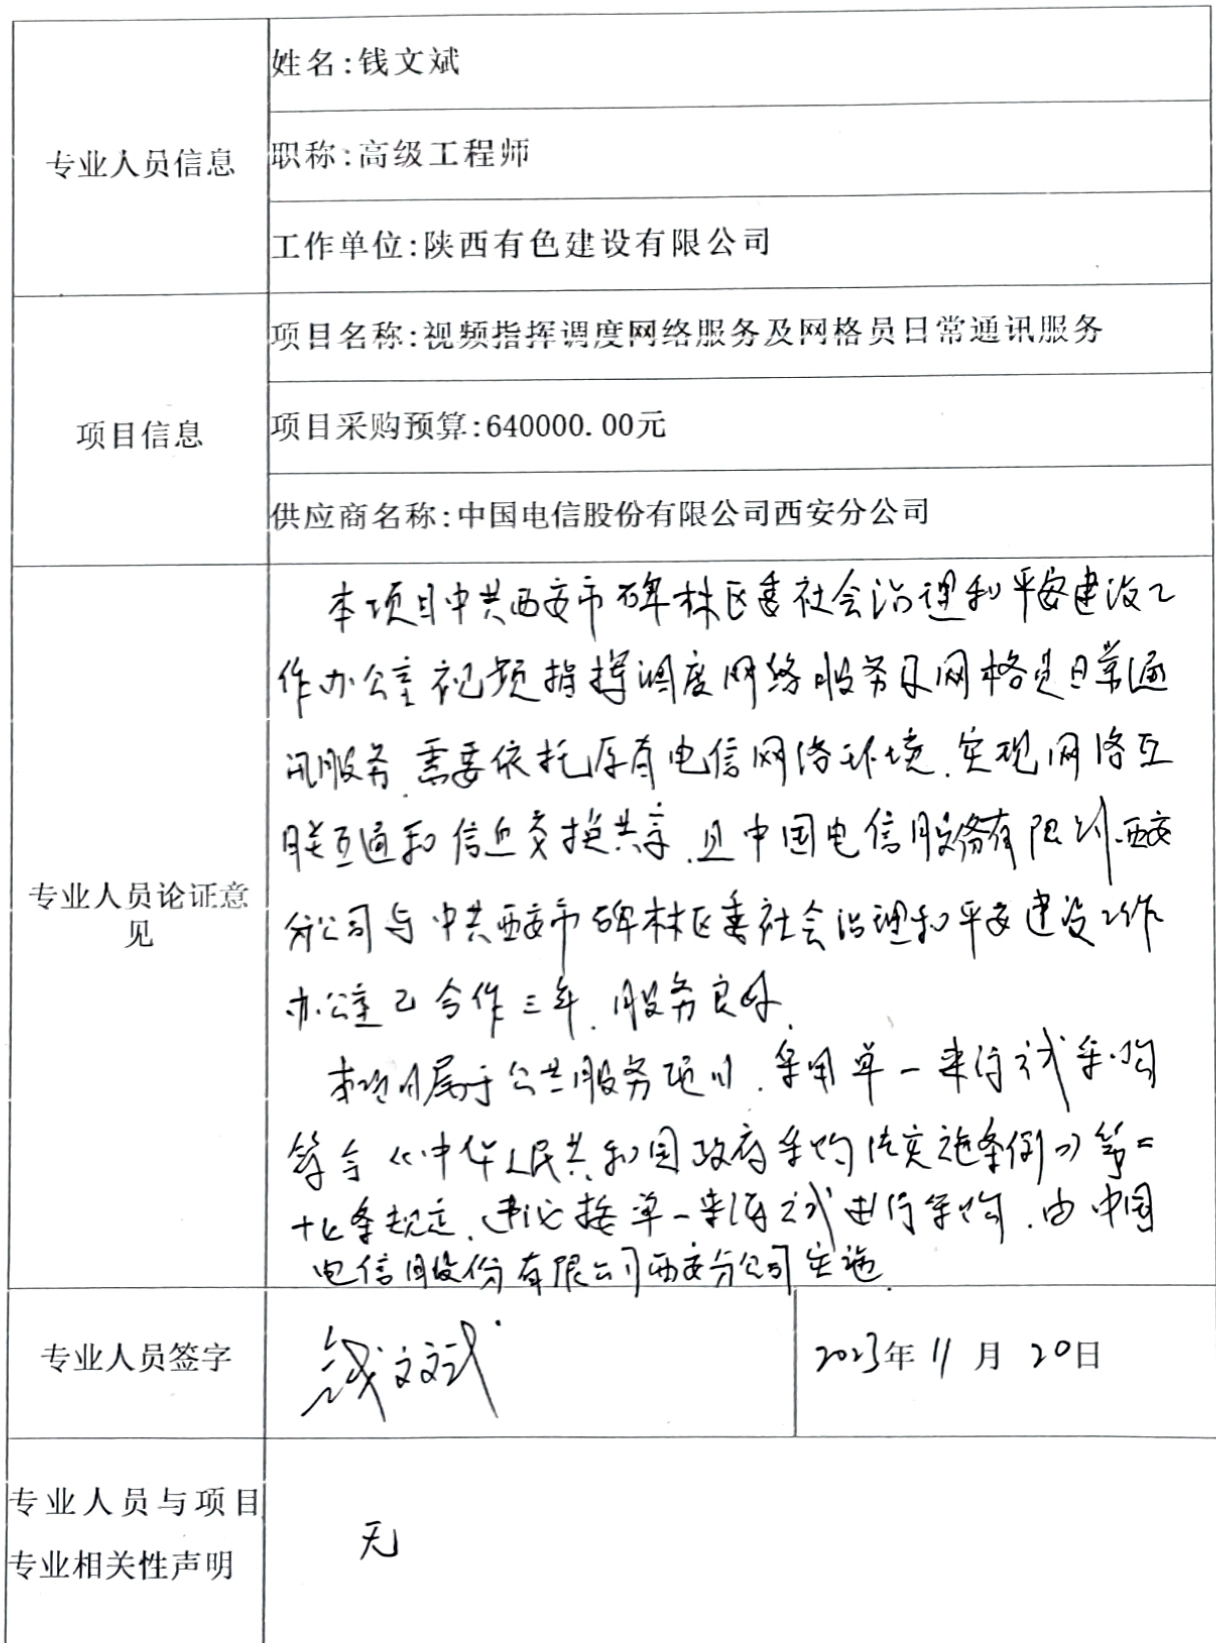 姓名:钱文斌
专业人员信息
职称:高级工程师
工作单位:陕西有色建设有限公司
项目名称:视频指挥调度网络服务及网格员日常通讯服务
项目信息
项目采购预算:640000.00元
供应商名称:中国电信股份有限公司西安分公司
专业人员论证意
见
本项目中共西安市碑林区委社会治理和平安建设工
作办公室视频指挥调度网络服务及网格员日常通
讯服务,需要依托原有电信网络环境,实现网络互
联互通和信息交换共享,且中国电信股份有限公司西安
分公司与中共西安市碑林区委社会治理和平安建设工作
办公室已合作三年,服务良好.
本项目属于公共服务项目,采用单一来源方式采购
符合《中华人民共和国政府采购法实施条例》第二
十七条规定,建议按单一来源方式进行采购,由中国
电信股份有限公司西安分公司实施.
专业人员签字
钱文斌
2023年11月20日
专业人员与项目
专业相关性声明
无